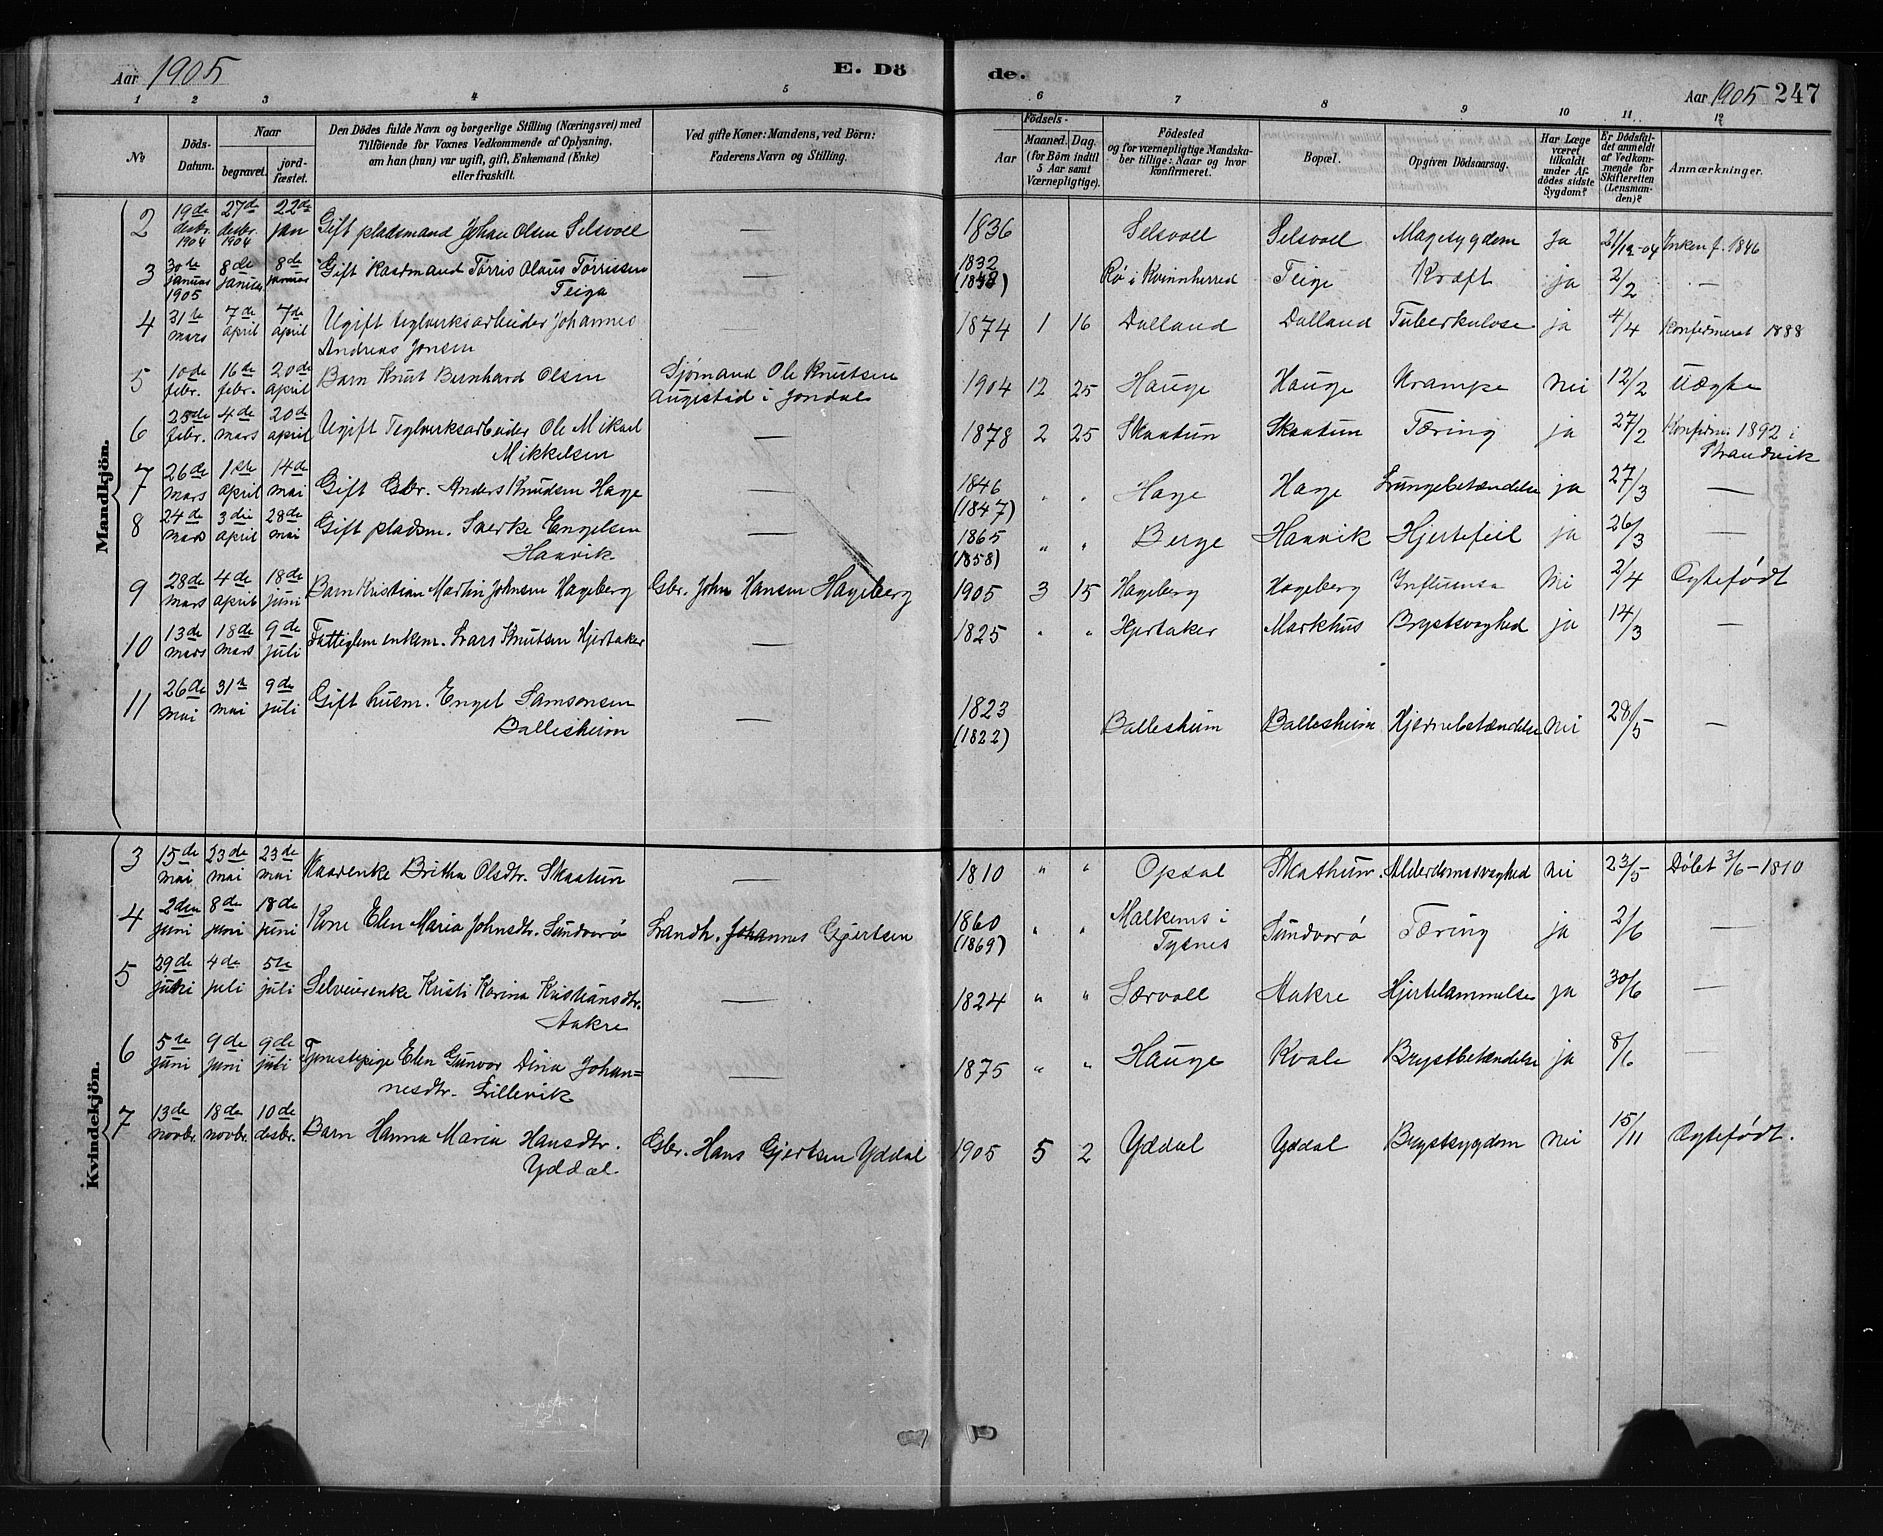 Aar 1905 E. Dö de. Aar 1905 247
1 2 3 4 5 6 7 8 9 10 11 12
No
Döds-Datum.
Naar
begravet.
jord-fæstet.
Den Dödes fulde Navn og borgerlige Stilling (Næringsvei) med
Tilföiende for Voxnes Vedkommende af Oplysning,
om han (hun) var ugift, gift, Enkemand (Enke)
eller fraskilt.
Ved gifte Koner: Mandens, ved Börn:
Faderens Navn og Stilling.
Födsels-
Aar
Maaned. Dag.
(for Börn indtil
5 Aar samt
Værnepligtige).
Födested
og for værnepligtige Mandska-
ber tillige: Naar og hvor
konfirmeret.
Bopæl.
Opgiven Dödsaarsag.
Har Læge
været
tilkaldt
under Af-
dödes sidste
Sygdom?
Er Dödsfal-
det anmeldt
af Vedkom-
mende for
Skifteretten
(Lensman-
den)?
Anmærkninger.
Mandkjön.
2 19de desbr. 1904 27de desbr. 1904 22de jan Gift pladsmand Johan Olsen Selsvoll — 1836 Selsvoll Selsvoll Mavesygdom Ja 21/12-04 Enken f. 1846
3 30te januar 1905 8de januar 8de januar Gift Kaarmand Tørris Olaus Tørrissen
Teige 1832 Rø i Kvinnherred Teige Kræft ja 2/2 —
4 31te mars 7de april 7de april Ugift teglverksarbeider Johannes
Andreas Jonsen — 1874 1 16 Dalland Dalland Tuberkulose ja 4/4 Konfirmeret 1888
5 10de febr. 16de febr. 20de april Barn Knut Bernhard Olsen Sjømand Ole Knutsen
Augestad i Jondal 1904 12 25 Hauge Hauge Krampe nei 12/2 Uægte
6 25de febr. 4de mars 20de april Ugift Teglverksarbeider Ole Mikael
Mikkelsen — 1878 2 25 Skaatun Skaatun Tæring ja 27/2 Konfirm. 1892 i
Strandvik
7 26de mars 1ste april 14de mai Gift Gbr. Anders Knudsen Hage — 1846
(1847) " " Hage Hage Lungebetændelse ja 27/3 —
8 24de mars 3die april 28de mai Gift pladsm. Sverke Engelsen
Haavik — 1865
(1858) " " Berge Haavik Hjertefeil ja 26/3 —
9 28de mars 4de april 18de juni Barn Kristian Martin Johnsen Hageberg Gbr. John Hansen Hageberg 1905 3 15 Hageberg Hageberg Influensa Nei 2/4 Ægtefødt
10 13de mars 18de mars 9de juli Fattiglem enkem. Lars Knutsen Hjertaker — 1825 " " Hjertaker Markhus Brystsvaghed ja 14/3 —
11 26de mai 31te mai 9de juli Gift husm. Engel Samsonsen
Ballesheim — 1823
(1822) Ballesheim Ballesheim Hjernebetændelse nei 28/5 —
Kvindekjön.
3 15de mai 23de mai 23de mai Kaarenke Britha Olsdtr. Skaatun — 1810 " " Opdal Skathun. Alderdomssvaghed nei 23/5 Døbt 3/6-1810
4 2den juni 8de juni 18de juni Kone Elen Maria Johnsdtr. Sundvorø Landh. Johannes Gjertsen 1860
(1869) " " Malkenes i
Tysnes Sundvorø Tæring ja 2/6 —
5 29de juni 4de juli 5te juli Selveierenke Kristi Karina Kristiansdtr.
Aakre — 1824 " " Særvoll Aakre Hjertelammelse ja 30/6 —
6 5te juni 9de juni 9de juli Tjenestepige Elen Gunvor Dina Johan=
nesdtr. Lillevik — 1875 " " Hauge Kvale Brystbetændelse ja 8/6 —
7 13de novbr. 18de novbr. 10de desbr. Barn Hanna Maria Hansdtr.
Yddal Gbr. Hans Gjertsen Yddal 1905 5 2 Yddal Yddal Brystsygdom nei 15/11 Ægtefødt.